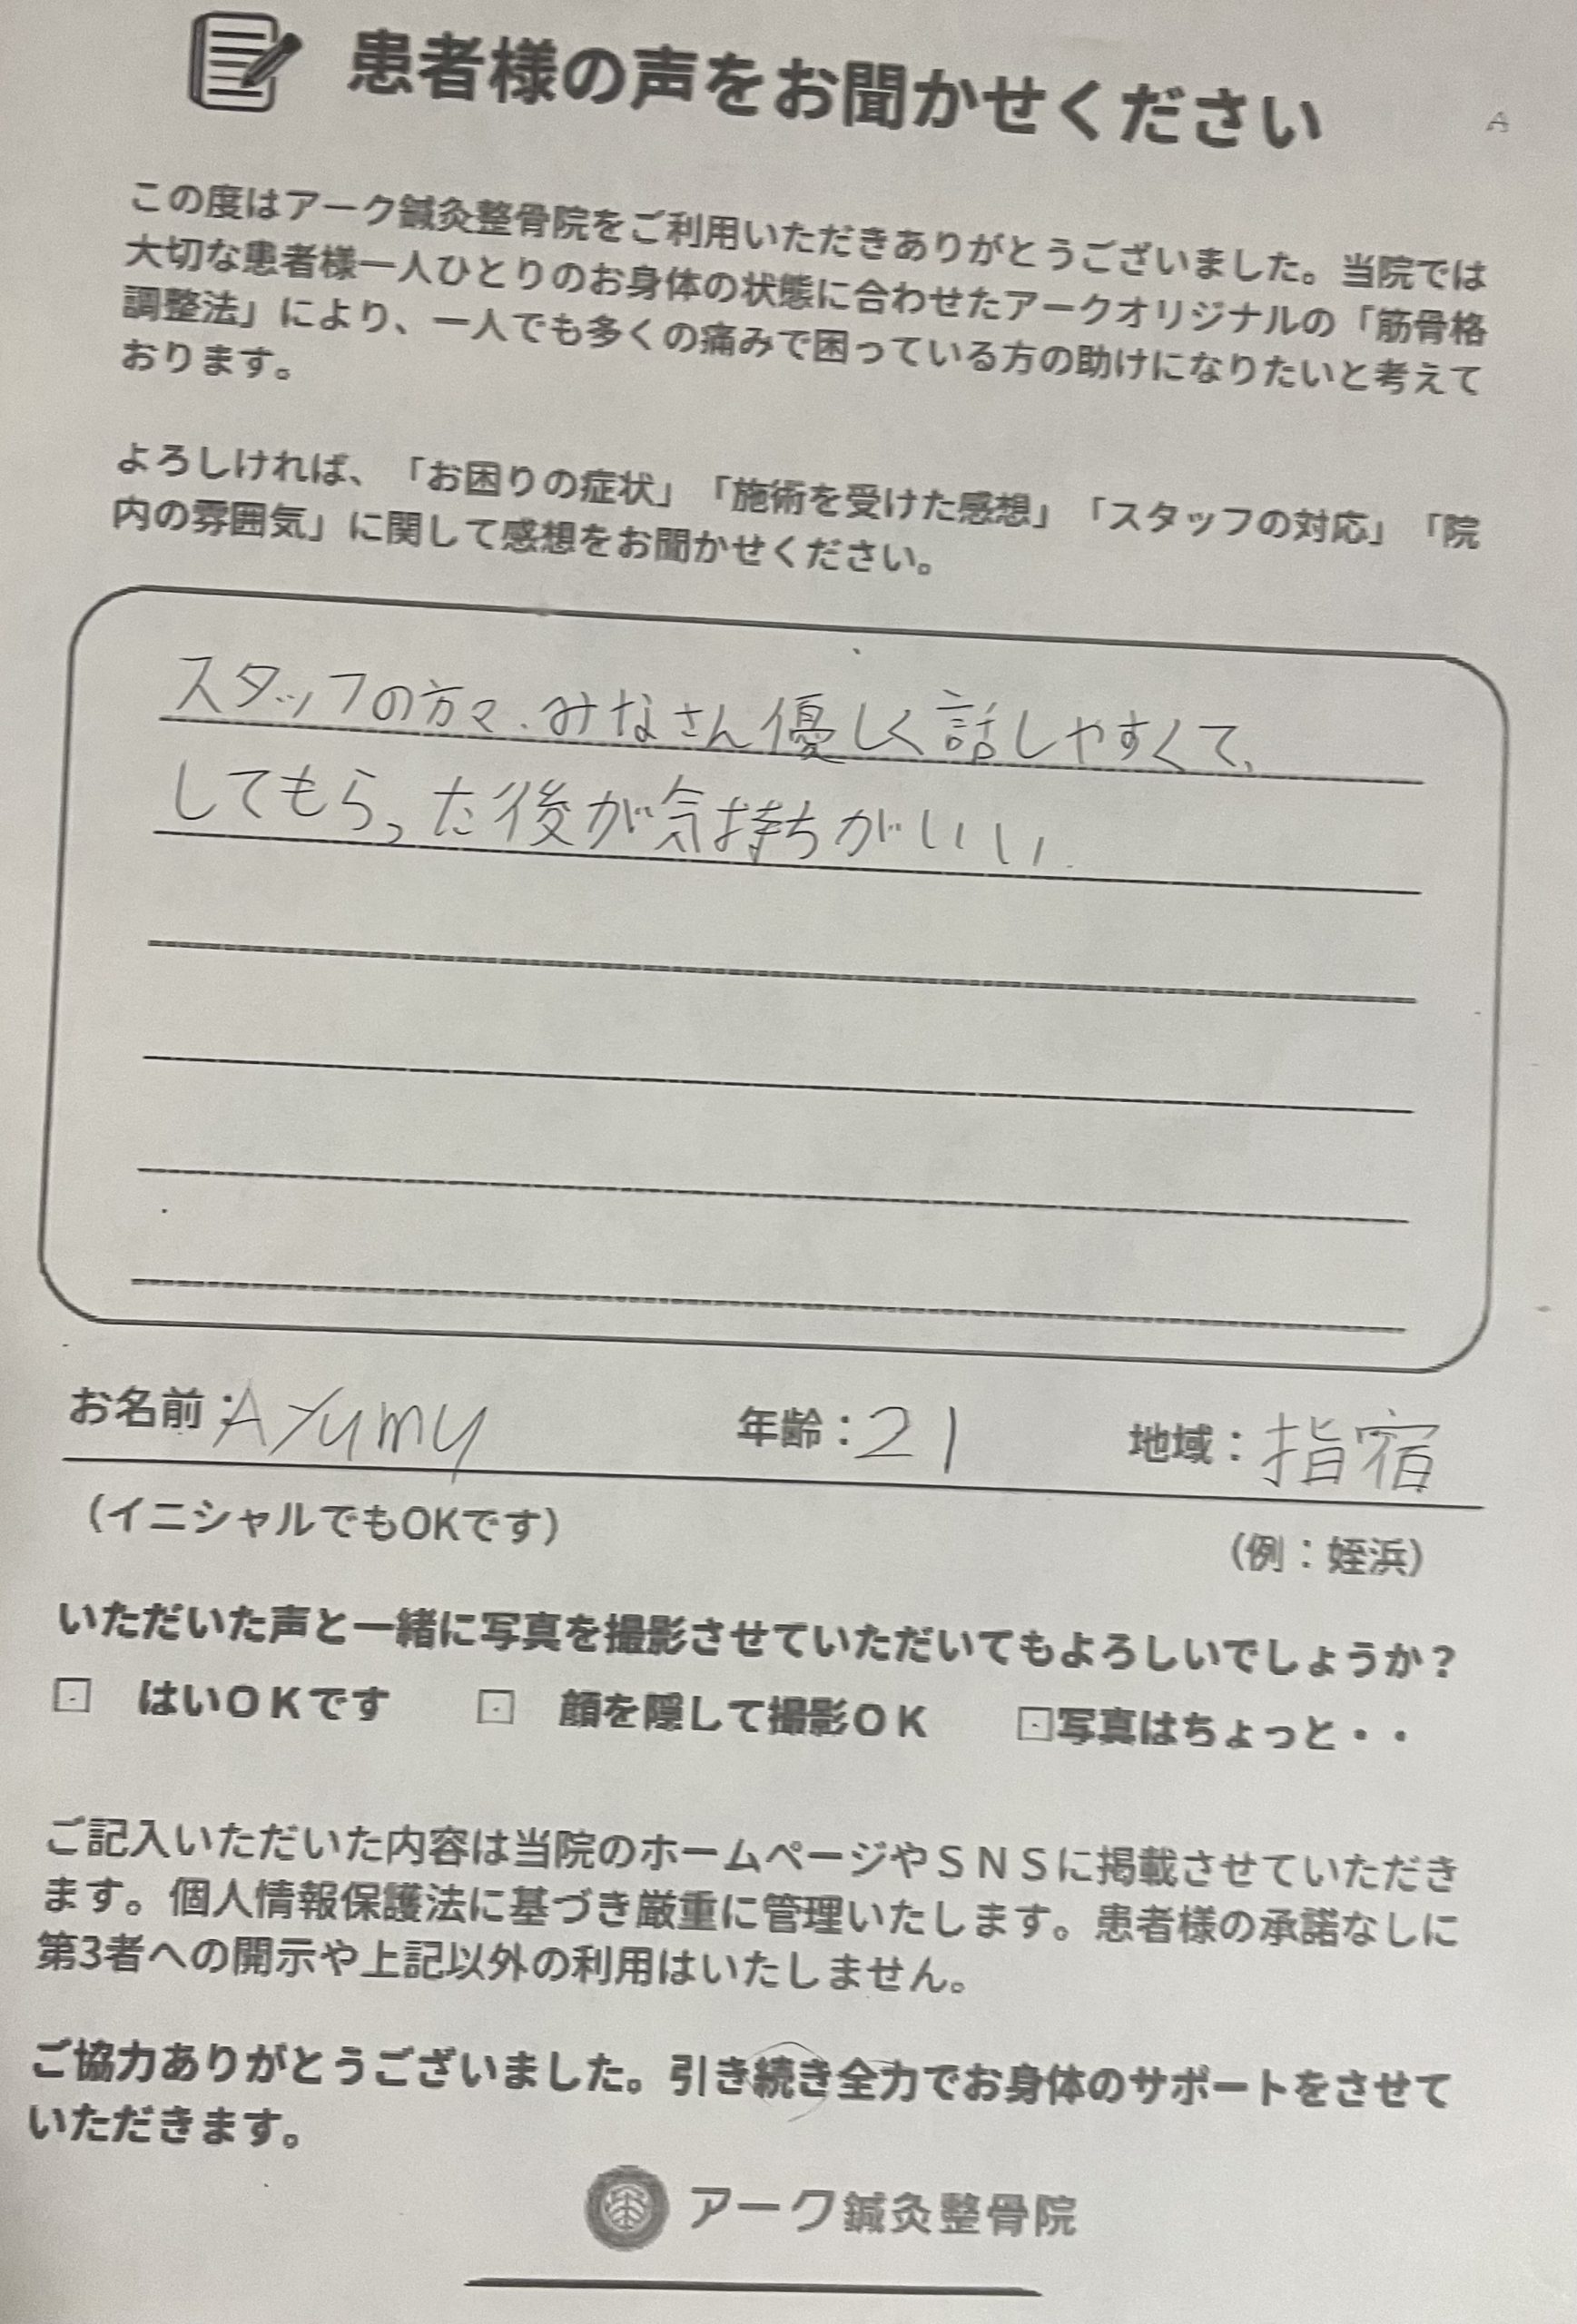 患者様の声をお聞かせください
A
この度はアーク鍼灸整骨院をご利用いただきありがとうございました。当院では
大切な患者様一人ひとりのお身体の状態に合わせたアークオリジナルの「筋骨格
調整法」により、一人でも多くの痛みで困っている方の助けになりたいと考えて
おります。
よろしければ、「お困りの症状」「施術を受けた感想」「スタッフの対応」「院
内の雰囲気」に関して感想をお聞かせください。
スタッフの方々、みなさん優しく話しやすくて、
してもらった後が気持ちがいい.
お名前：Ayumy 年齢：21 地域：指宿
（イニシャルでもOKです） （例：姪浜）
いただいた声と一緒に写真を撮影させていただいてもよろしいでしょうか？
□ はいＯＫです □ 顔を隠して撮影ＯＫ □写真はちょっと・・
ご記入いただいた内容は当院のホームページやＳＮＳに掲載させていただき
ます。個人情報保護法に基づき厳重に管理いたします。患者様の承諾なしに
第3者への開示や上記以外の利用はいたしません。
ご協力ありがとうございました。引き続き全力でお身体のサポートをさせて
いただきます。
アーク鍼灸整骨院